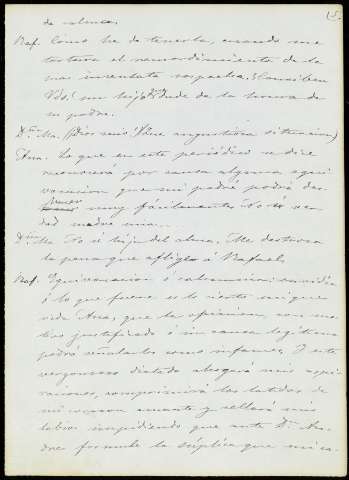 (5.
de calma.
Raf. Cómo he de tenerla, cuando me
tortura el remordimiento de la
mas infundada sospecha. ¡Conciben
Vds! un hijo dude de la honra de
su padre.
Dña. Ma. ¡Dios mio! (Que angustiosa situacion)
Ana. Lo que en este periódico se dice
reconocerá por causa alguna equi
vocacion que mi padre podrá des
vanecer muy fácilmente. No es ver
dad madre mia...
Dña. Ma. Si si hija del alma. Me destroza
la pena que aflige á Rafael.
Raf. Equivocacion ó calumnia; envidia
ó lo que fuere es lo cierto mi que
rida Ana, que la opinion, con mo
tivo justificado ó sin causa legítima
podrá señalarlo como infame. Y este
vergonzoso dictado ahogará mis aspi
raciones, comprimirá los latidos de
mi corazon amante y sellará mis
labios impidiendo que ante D. An
dres formule la súplica que mi ca-